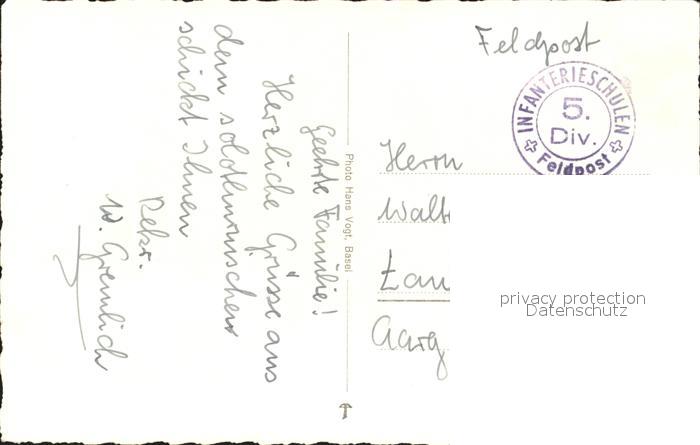 Feldpost
INFANTERIESCHULEN
5.
Div.
Feldpost
Geehrte Familie!
Herzliche Grüsse aus
dem solothurnischen
schickt Ihnen
Rekr.
W. Gremlich
Photo Hans Vogt, Basel
Herrn
Walt
Aarg
privacy protection
Datenschutz